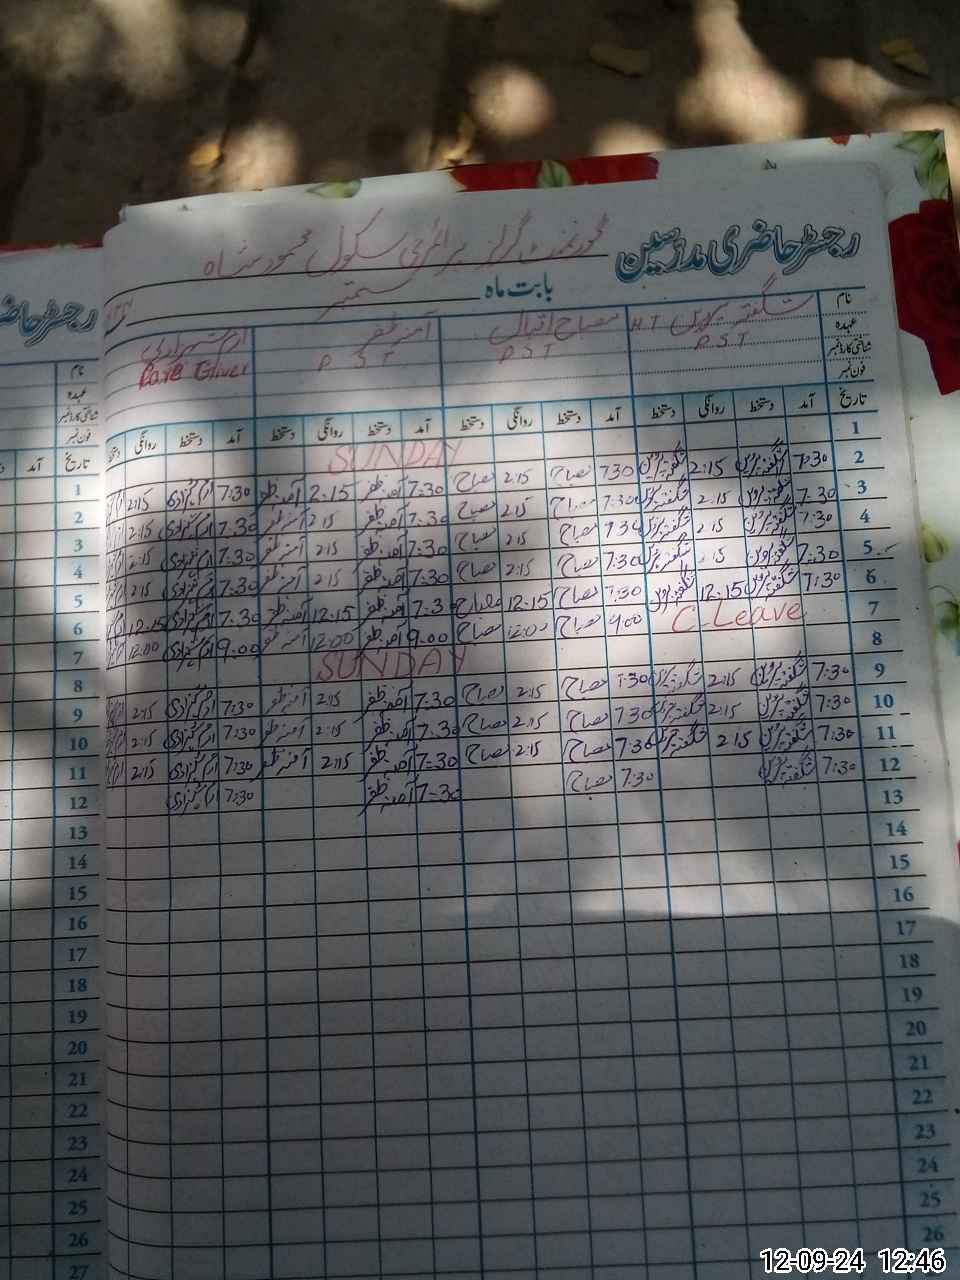 رجسٹر حاضری مدرسین گورنمنٹ گرلز پرائمری سکول محمود شاہ
بابت ماہ ستمبر
نام شگفتہ پروین مصباح اقبال آمنہ ظفر
عہدہ H T P S T P S T P S T Care Giver
شناختی کارڈ نمبر
فون نمبر
تاریخ آمد دستخط روانگی دستخط آمد دستخط روانگی دستخط آمد دستخط روانگی دستخط آمد دستخط روانگی دستخط
1 SUNDAY
2 7:30 شگفتہ پروین 2:15 شگفتہ پروین 7:30 مصباح 2:15 مصباح 7:30 آمنہ ظفر 2:15 آمنہ ظفر 7:30 2:15
3 7:30 شگفتہ پروین 2:15 شگفتہ پروین 7:30 مصباح 2:15 مصباح 7:30 آمنہ ظفر 2:15 آمنہ ظفر 7:30 2:15
4 7:30 شگفتہ پروین 2:15 شگفتہ پروین 7:30 مصباح 2:15 مصباح 7:30 آمنہ ظفر 2:15 آمنہ ظفر 7:30 2:15
5 7:30 شگفتہ پروین 2:15 شگفتہ پروین 7:30 مصباح 2:15 مصباح 7:30 آمنہ ظفر 2:15 آمنہ ظفر 7:30 2:15
6 7:30 شگفتہ پروین 12:15 شگفتہ پروین 7:30 مصباح 12:15 مصباح 7:30 آمنہ ظفر 12:15 آمنہ ظفر 7:30 12:15
7 C.Leave 9:00 مصباح 12:00 مصباح 9:00 آمنہ ظفر 12:00 آمنہ ظفر 9:00 12:00
8 SUNDAY
9 7:30 شگفتہ پروین 2:15 شگفتہ پروین 7:30 مصباح 2:15 مصباح 7:30 آمنہ ظفر 2:15 آمنہ ظفر 7:30 2:15
10 7:30 شگفتہ پروین 2:15 شگفتہ پروین 7:30 مصباح 2:15 مصباح 7:30 آمنہ ظفر 2:15 آمنہ ظفر 7:30 2:15
11 7:30 شگفتہ پروین 2:15 شگفتہ پروین 7:30 مصباح 2:15 مصباح 7:30 آمنہ ظفر 2:15 آمنہ ظفر 7:30 2:15
12 7:30 شگفتہ پروین 7:30 مصباح 7:30 آمنہ ظفر 7:30
13
14
15
16
17
18
19
20
21
22
23
24
25
26
رجسٹر حاضر
نام
عہدہ
شناختی کارڈ نمبر
فون نمبر
تاریخ آمد
1
2
3
4
5
6
7
8
9
10
11
12
13
14
15
16
17
18
19
20
21
22
23
24
25
26
27
12-09-24 12:46